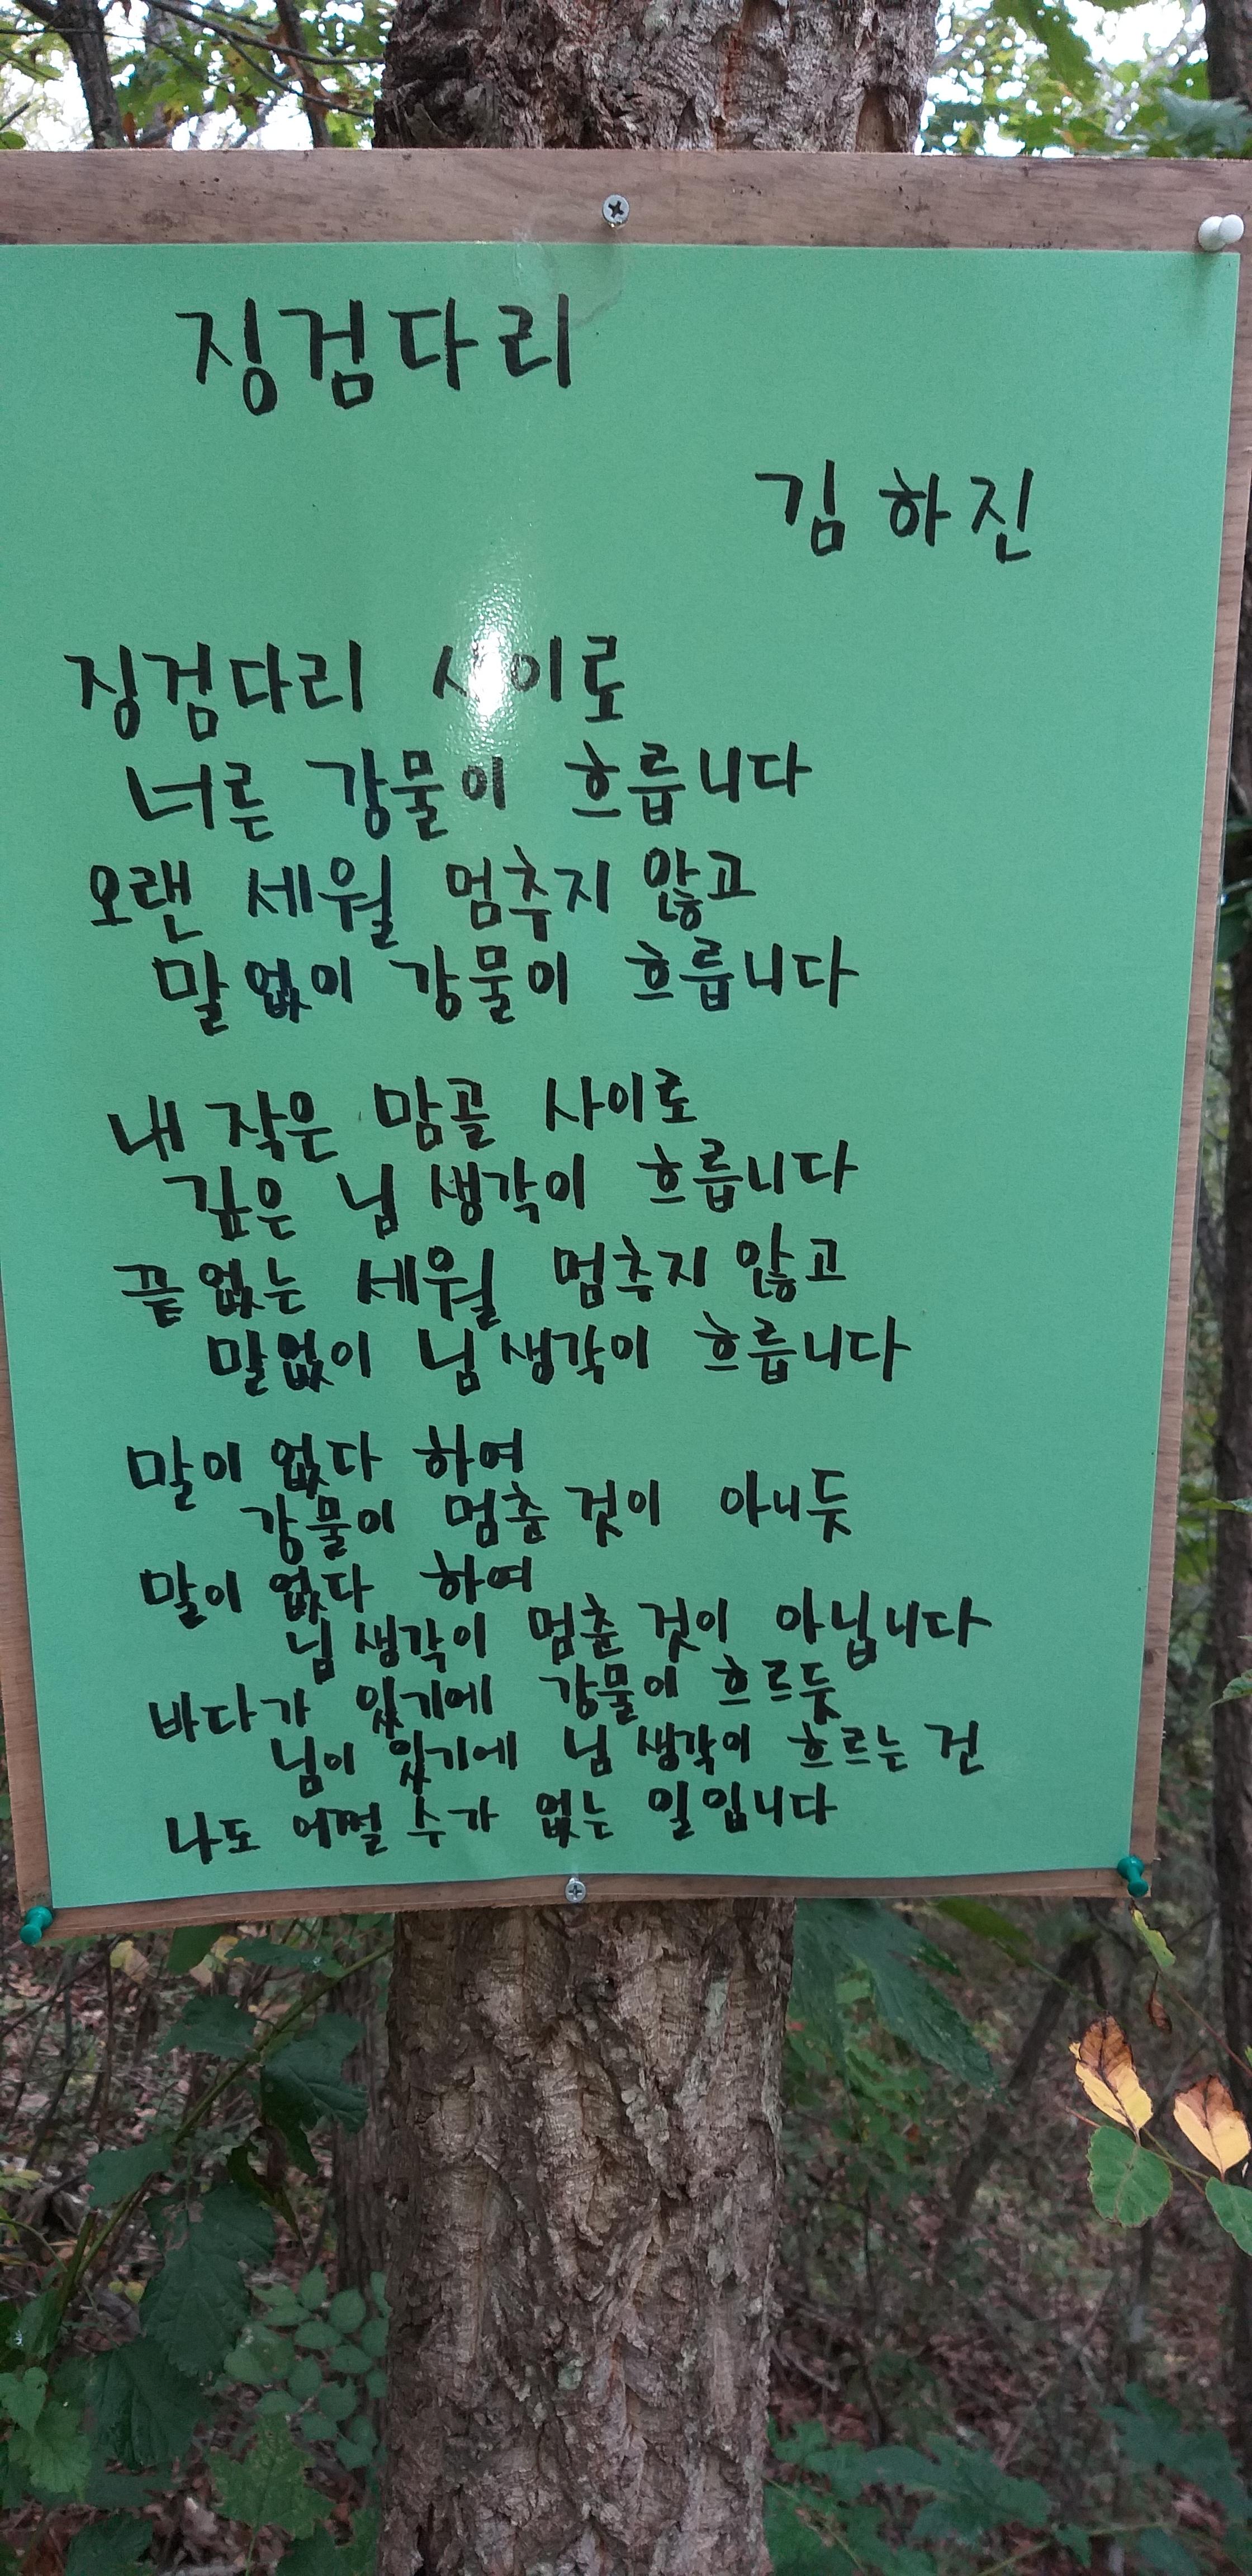 징검다리
김하진
징검다리 사이로
너른 강물이 흐릅니다
오랜 세월 멈추지 않고
말없이 강물이 흐릅니다
내 작은 맘골 사이로
깊은 님 생각이 흐릅니다
끝없는 세월 멈추지 않고
말없이 님 생각이 흐릅니다
말이 없다 하여
강물이 멈춘 것이 아니듯
말이 없다 하여
님 생각이 멈춘 것이 아닙니다
바다가 있기에 강물이 흐르듯
님이 있기에 님 생각이 흐르는 건
나도 어쩔 수가 없는 일입니다